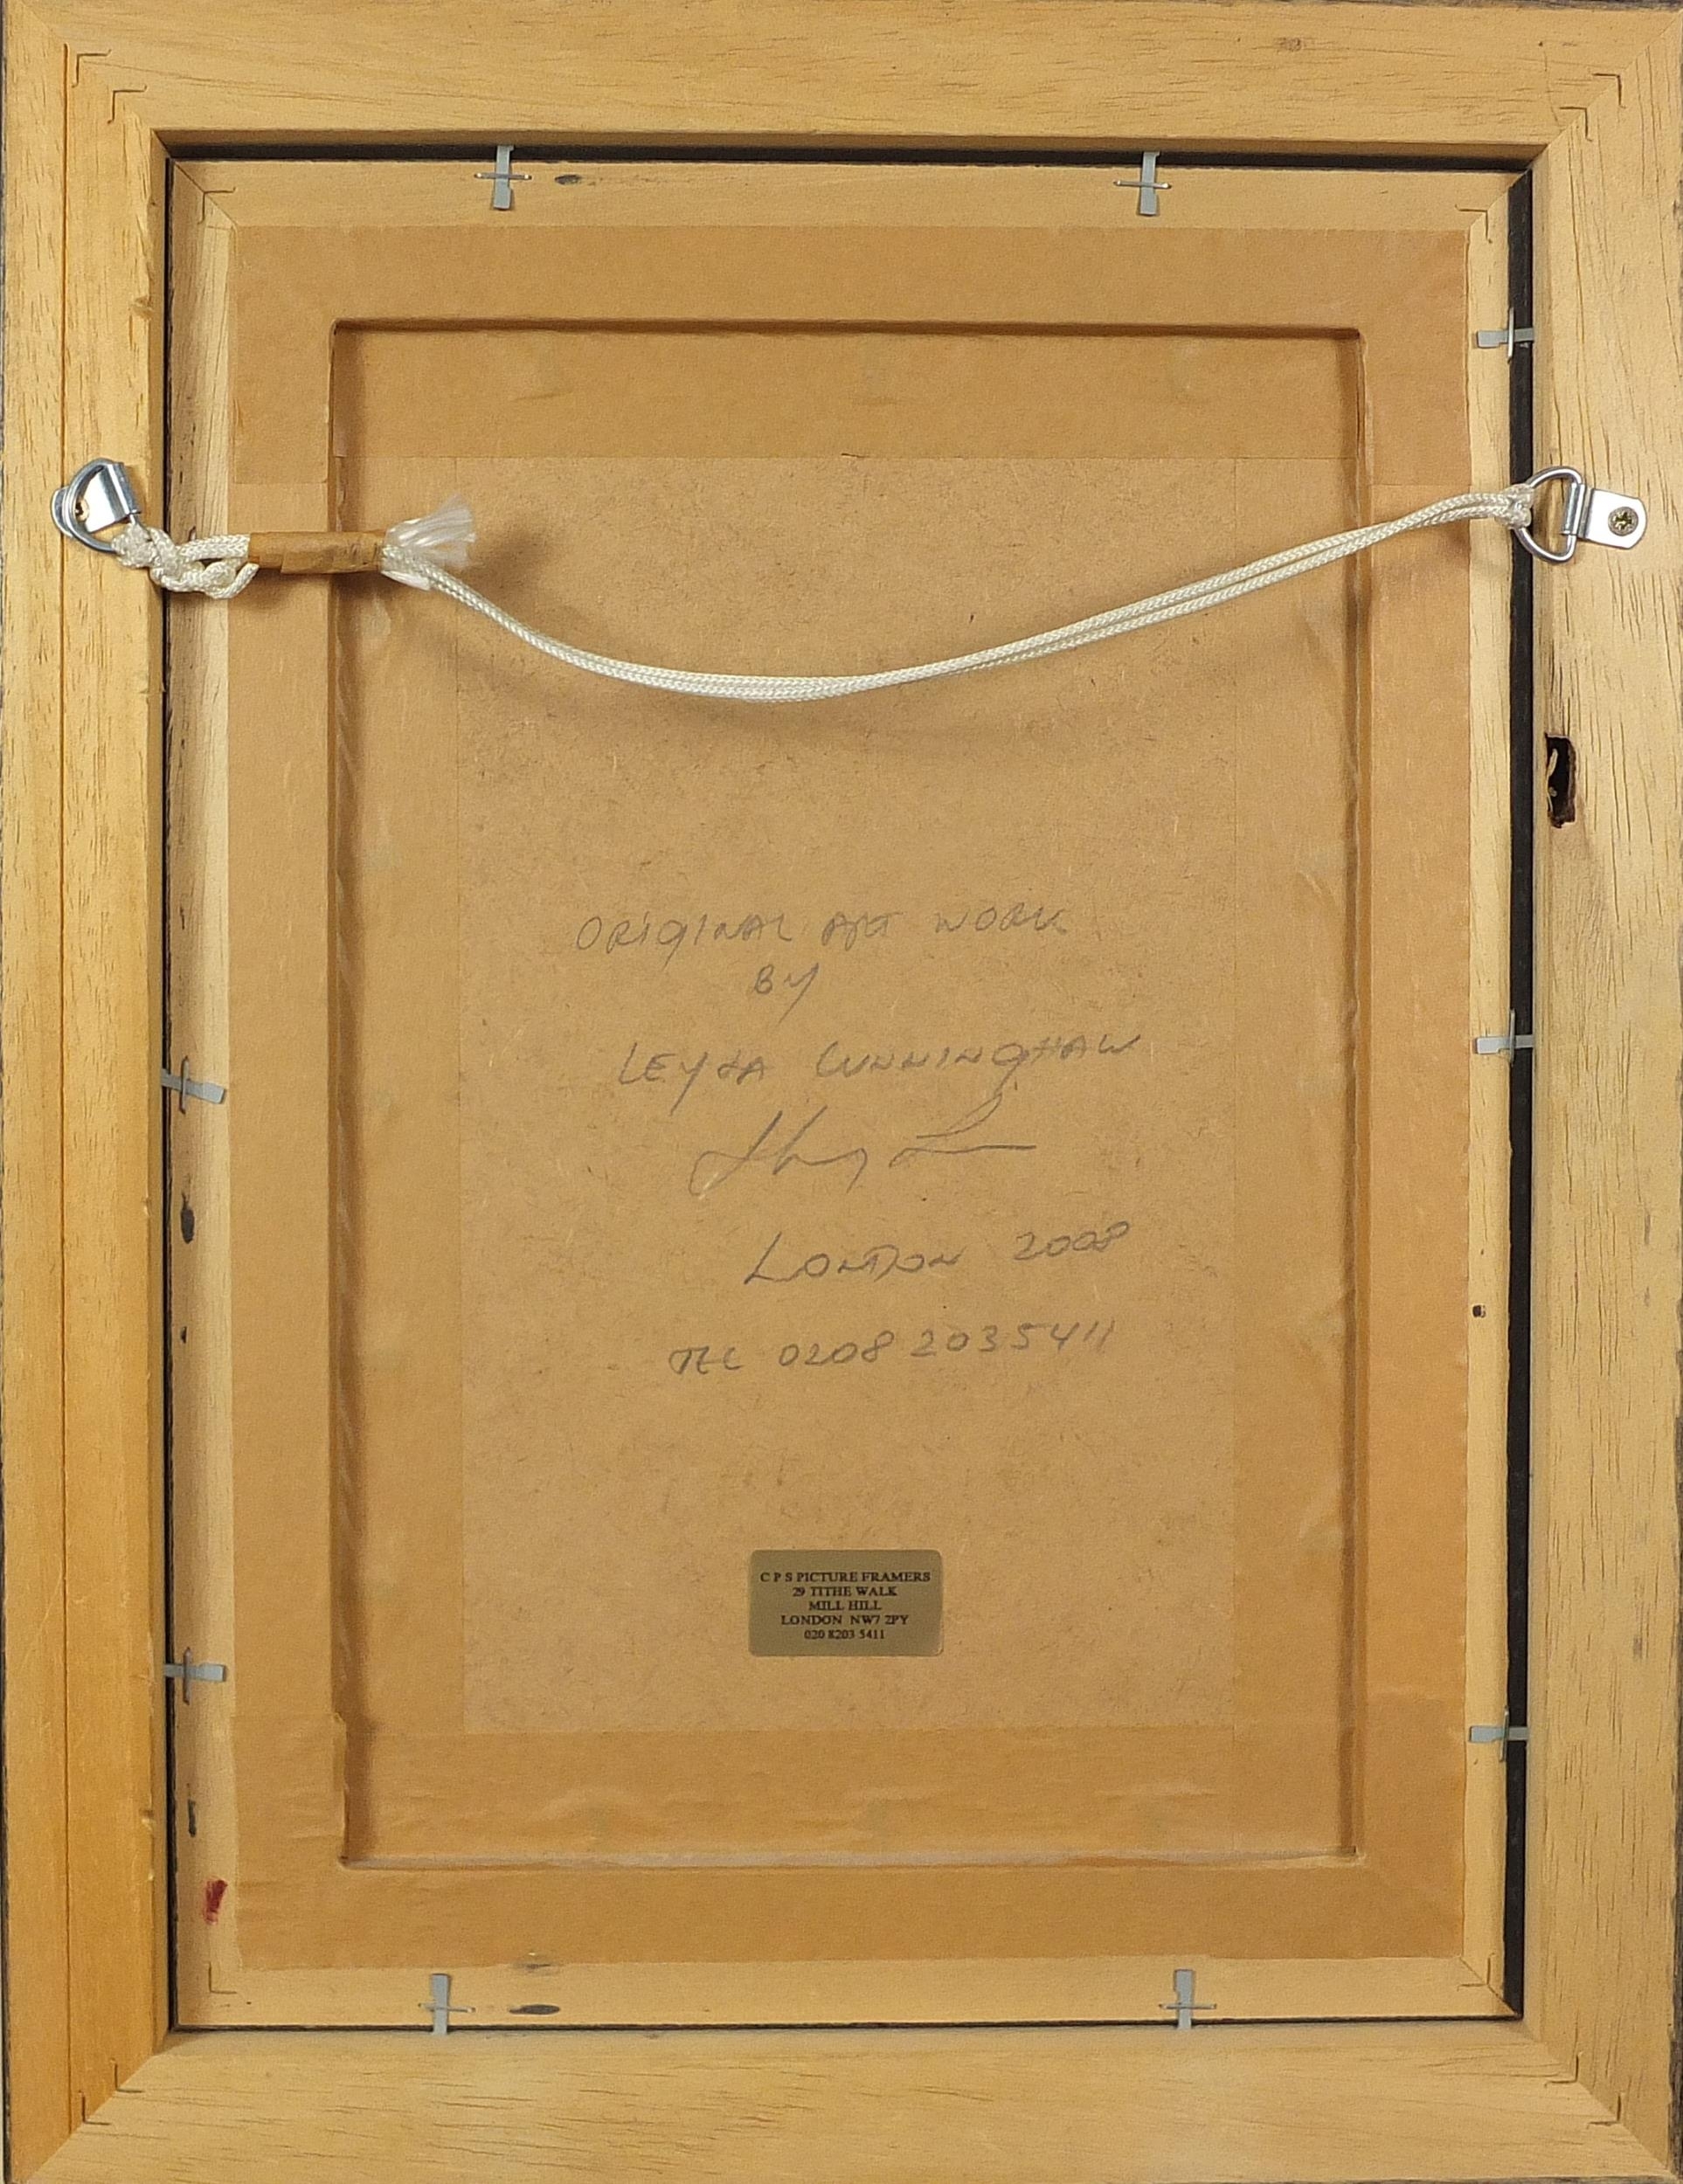 ORIGINAL ART WORK
BY
CUNNINGHAM
LONDON 2008
TEL 0208 2035411
C P S PICTURE FRAMERS
29 TITHE WALK
MILL HILL
LONDON NW7 2PY
020 8203 5411